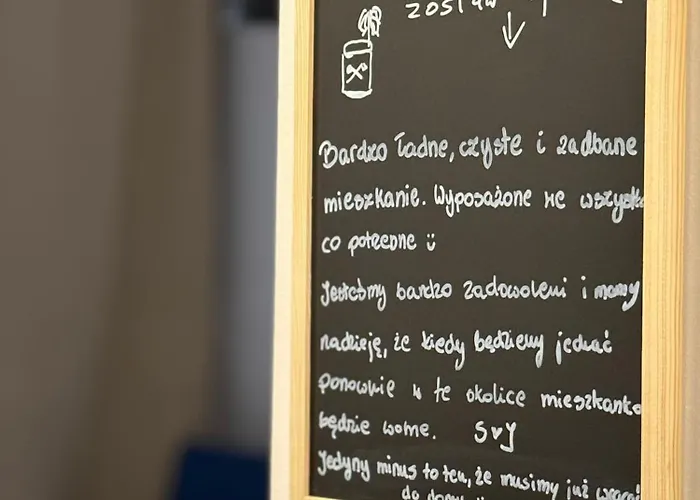 zostaw
Bardzo ładne, czyste i zadbane
mieszkanie. Wyposażone we wszystko
co potrzebne
Jesteśmy bardzo zadowoleni i mamy
nadzieję, że kiedy będziemy jechać
ponownie w te okolice mieszkanko
będzie wolne. S♥J
Jedyny minus to ten, że musimy już wracać
do domu